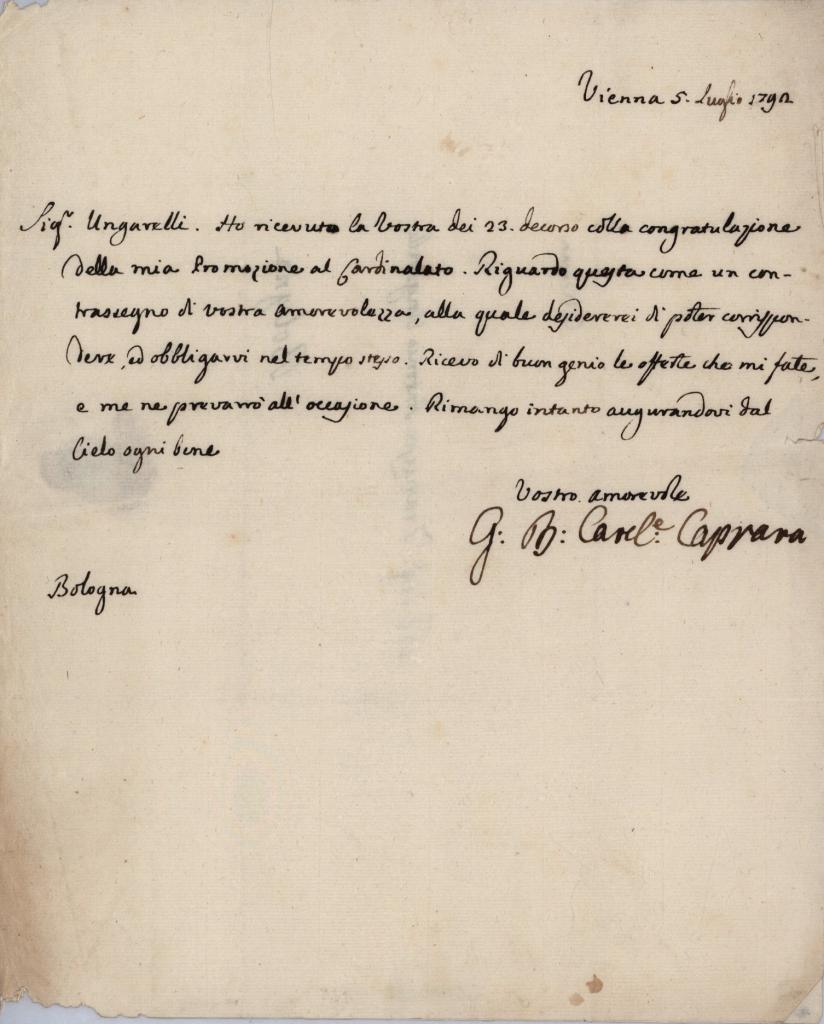 Vienna 5. Luglio 1792
Sigr. Ungarelli. Ho ricevuto la Vostra dei 23. decorso colla congratulazione
della mia Promozione al Cardinalato. Riguardo questa come un con-
trassegno di vostra amorevolezza, alla quale desidererei di poter corrispon-
dere, ed obbligarvi nel tempo stesso. Ricevo di buon genio le offerte che mi fate,
e me ne prevarrò all' occasione. Rimango intanto augurandovi dal
Cielo ogni bene
Vostro amorevole
G: B: Card.e Caprara
Bologna